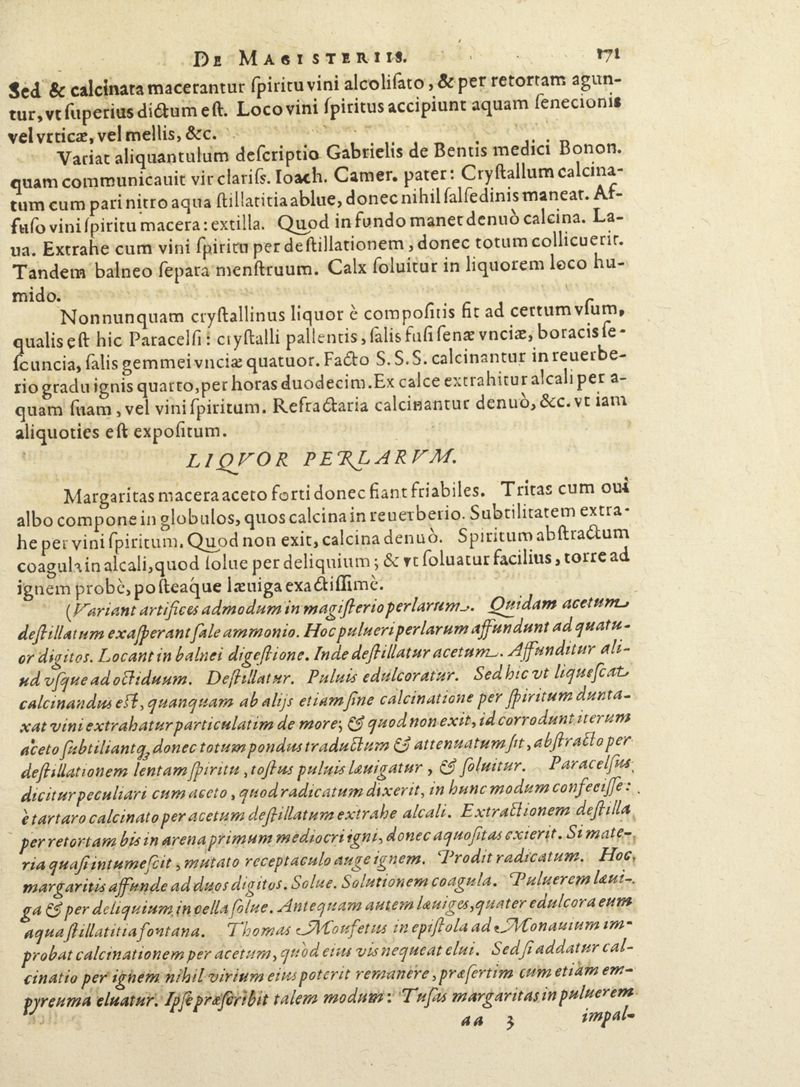 DE MAGISTERIIS. 171
Sed & calcinata macerantur ſpiritu vini alcoliſato, & per retortam agun-
tur, vt ſuperius dictum eſt. Loco vini ſpiritus accipiunt aquam ſenecionis
vel vrticæ, vel mellis, &c.
Variat aliquantulum deſcriptio Gabrielis de Bentis medici Bonon.
quam communicauit vir clariſs. Ioach. Camer. pater: Cryſtallum calcina-
tum cum pari nitro aqua ſtillatitia ablue, donec nihil ſalſedinis maneat. Af-
fuſo vini ſpiritu macera: extilla. Quod in fundo manet denuò calcina. La-
ua. Extrahe cum vini ſpiritu per deſtillationem, donec totum collicuerit.
Tandem balneo ſepara menſtruum. Calx ſoluitur in liquorem loco hu-
mido.
Nonnunquam cryſtallinus liquor è compoſitis fit ad certum vſum,
qualis eſt hic Paracelſi: cryſtalli pallentis, ſalis fuſi ſenæ vnciæ, boracis ſe-
ſcuncia, ſalis gemmei vnciæ quatuor. Facto S. S. S. calcinantur in reuerbe-
rio gradu ignis quarto, per horas duodecim. Ex calce extrahitur alcali per a-
quam ſuam, vel vini ſpiritum. Refractaria calcinantur denuò, &c. vt iam
aliquoties eſt expoſitum.
LIQVOR PERLARVM.
Margaritas macera aceto forti donec fiant friabiles. Tritas cum oui
albo compone in globulos, quos calcina in reuerberio. Subtilitatem extra-
he per vini ſpiritum. Quod non exit, calcina denuò. Spiritum abſtractum
coagula in alcali, quod ſolue per deliquium; & vt ſoluatur facilius, torre ad
ignem probè, poſteaque læuiga exactiſſimè.
(Variant artifices admodum in magiſterio perlarum. Quidam acetum
deſtillatum exaſperant ſale ammonio. Hoc pulueri perlarum affundunt ad quatu-
or digitos. Locant in balnei digeſtione. Inde deſtillatur acetum. Affunditur ali-
ud vſque ad octiduum. Deſtillatur. Puluis edulcoratur. Sed hic vt liqueſcat
calcinandus eſt, quanquam ab alijs etiam ſine calcinatione per ſpiritum dunta-
xat vini extrahatur particulatim de more; & quod non exit, id corrodunt iterum
aceto ſubtiliantq, donec totum pondus traductum & attenuatum ſit, abſtracto per
deſtillationem lentam ſpiritu, toſtus puluis læuigatur, & ſoluitur. Paracelſus
dicitur peculiari cum aceto, quod radicatum dixerit, in hunc modum confeciſſe:
è tartaro calcinato per acetum deſtillatum extrahe alcali. Extractionem deſtilla
per retortam bis in arena primum mediocri igni, donec aquoſitas exierit. Si mate-
ria quaſi intumeſcit, mutato receptaculo auge ignem. Prodit radicatum. Hoc,
margaritis affunde ad duos digitos. Solue. Solutionem coagula. Puluerem læui-
ga & per deliquium in cella ſolue. Antequam autem læuiges, quater edulcora eum
aqua ſtillatitia fontana. Thomas Moufetus in epiſtola ad Monauium im-
probat calcinationem per acetum, quod eius vis nequeat elui. Sed ſi addatur cal-
cinatio per ignem nihil virium eius poterit remanere, præſertim cum etiam em-
pyreuma eluatur. Ipſe præſcribit talem modum: Tuſas margaritas in puluerem
aa 3 impal-